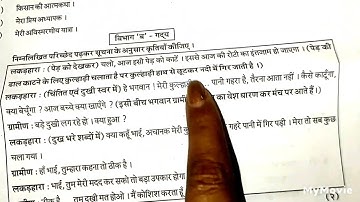 किसान की आत्मकथा
मेरा प्रिय अध्यापक ।
मेरी अविस्मरणीय यात्रा ।
विभाग 'ब' - गद्य
निम्नलिखित परिच्छेद पढ़कर सूचना के अनुसार कृतियाँ कीजिए ।
लकड़हारा : (पेड़ को देखकर) चलो, आज इसी पेड़ को काटें । इससे आज की रोटी का इंतजाम हो जाएगा । (पेड़ की
डाल काटने के लिए कुल्हाड़ी चलाता है पर कुल्हाड़ी हाथ से छूटकर नदी में गिर जाती है ।)
लकड़हारा : (चिंतित एवं दुखी स्वर में) हे भगवान ! मेरी कुल्हाड़ी पानी गहरा है, तैरना आता नहीं । कैसे काटूँगा,
क्या बेचूँगा ? आज बच्चे क्या खाएंगे ? (इसी बीच भगवान ग्रामीण का वेश धारण कर मंच पर आते हैं।)
ग्रामीण : बड़े दुखी लग रहे हो । क्या हुआ ?
लकड़हारा : (दुख भरे शब्दों में) क्या कहूँ भाई, अचानक मेरी कुल्हाड़ी गहरे पानी में गिर पड़ी । मेरा तो सब कुछ
चला गया ।
ग्रामीण : हाँ भाई, तुम्हारा कहना तो ठीक है ।
लकड़हारा : भाई, तुम मेरी मदद कर सको तो बड़ा उपकार होगा
ग्रामीण : ठीक है तुम दुखी मत होओ । मैं कोशिश करता हूँ
(२)
MyMovie